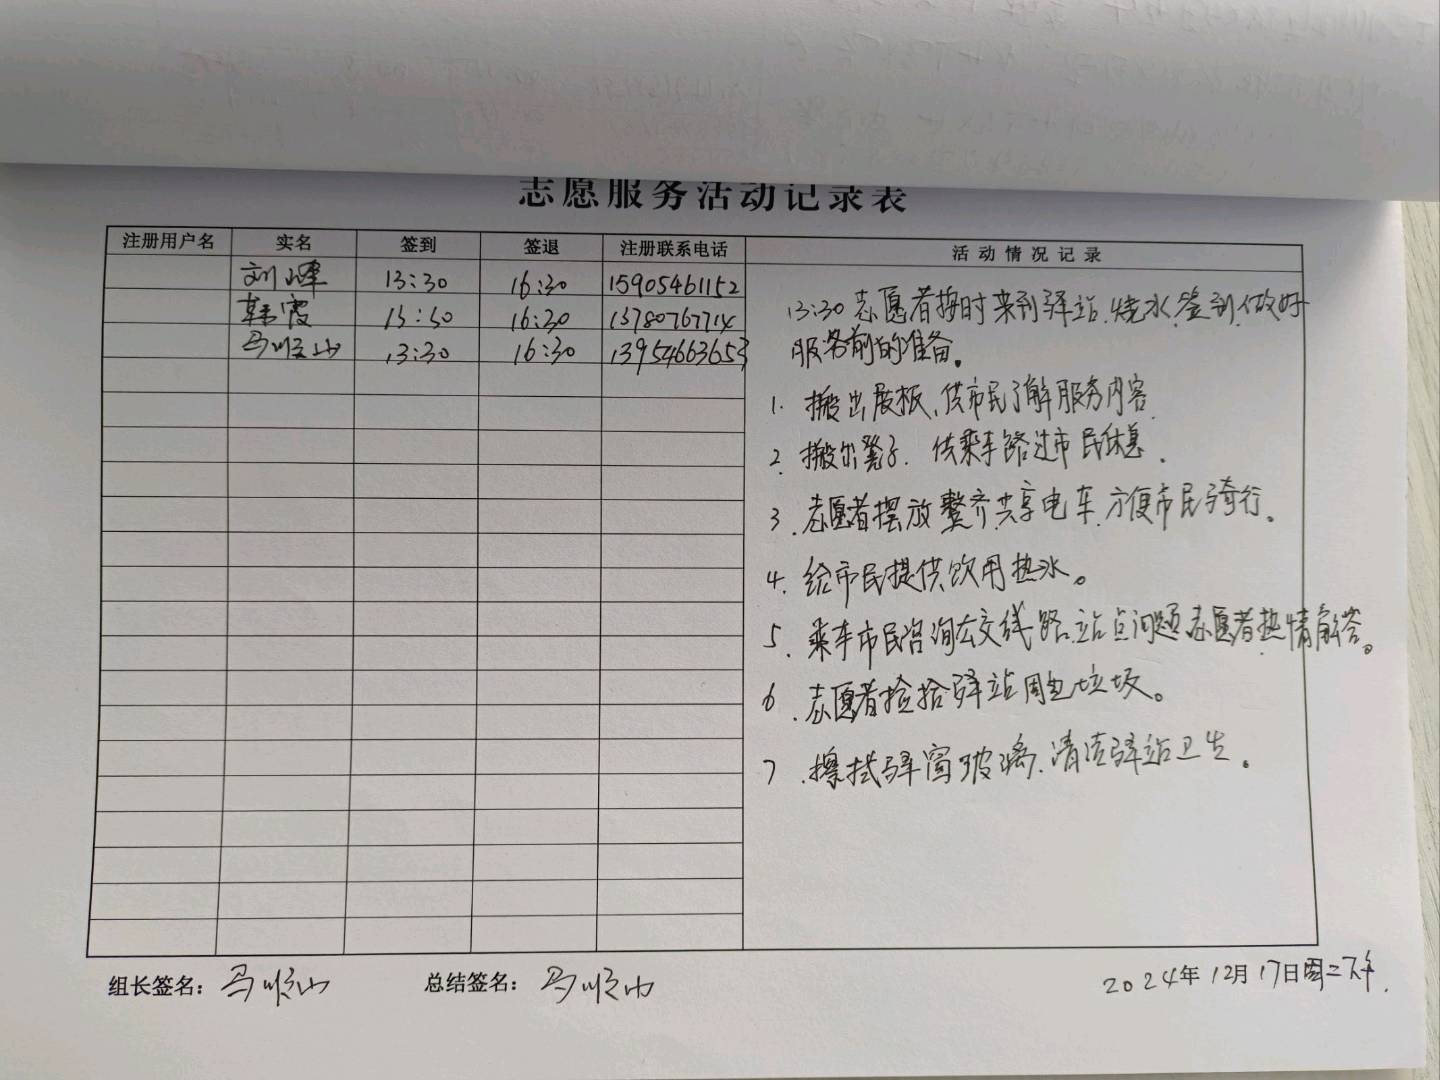 志愿服务活动记录表
注册用户名 实名 签到 签退 注册联系电话 活动情况记录
刘峰 13:30 16:30 15905461152
韩霞 13:30 16:30 13780767714
马顺山 13:30 16:30 13954663653
13:30志愿者按时来到驿站.烧水.签到.做好
服务前的准备。
1. 搬出展板、供市民了解服务内容.
2. 搬出凳子. 供乘车路过市民休息.
3. 志愿者摆放整齐共享电车.方便市民骑行。
4. 给市民提供饮用热水。
5. 乘车市民咨询公交线路.站点问题志愿者热情解答。
6. 志愿者捡拾驿站周边垃圾。
7. 擦拭驿窗玻璃.清洁驿站卫生。
组长签名：马顺山 总结签名：马顺山 2024年12月17日周二下午.